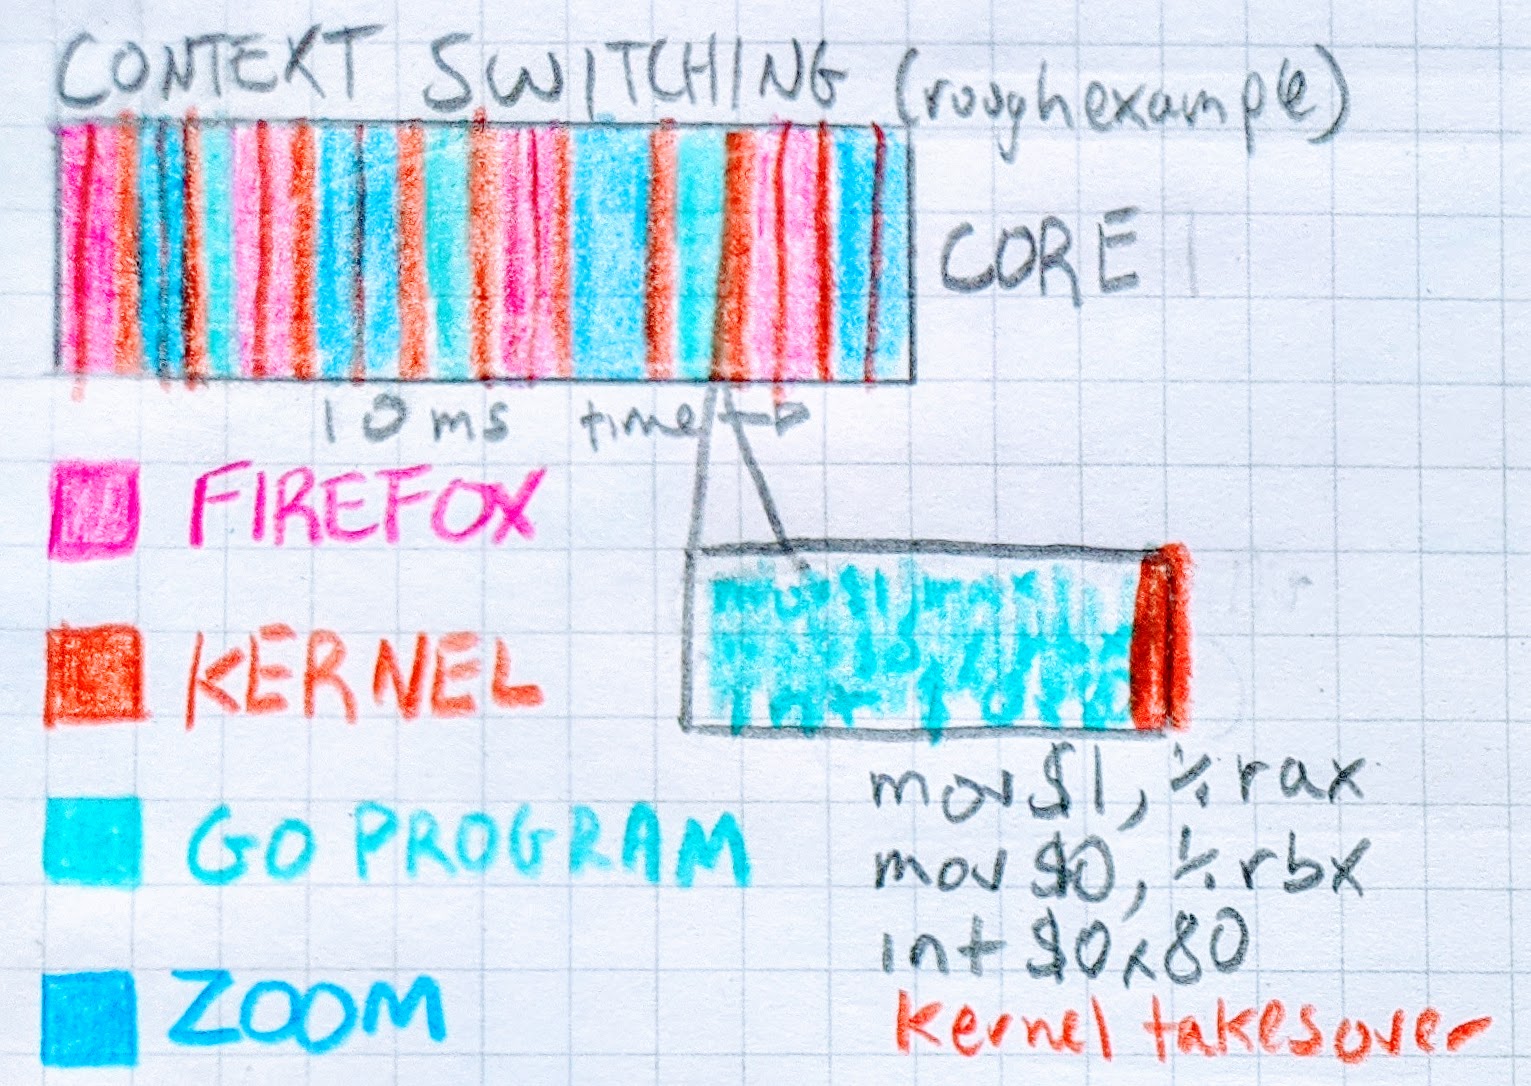 CONTEXT SWITCHING (rough example)
CORE 1
10 ms time
FIREFOX
KERNEL
GO PROGRAM
ZOOM
mov $1, %rax
mov $0, %rbx
int $0x80
kernel takes over